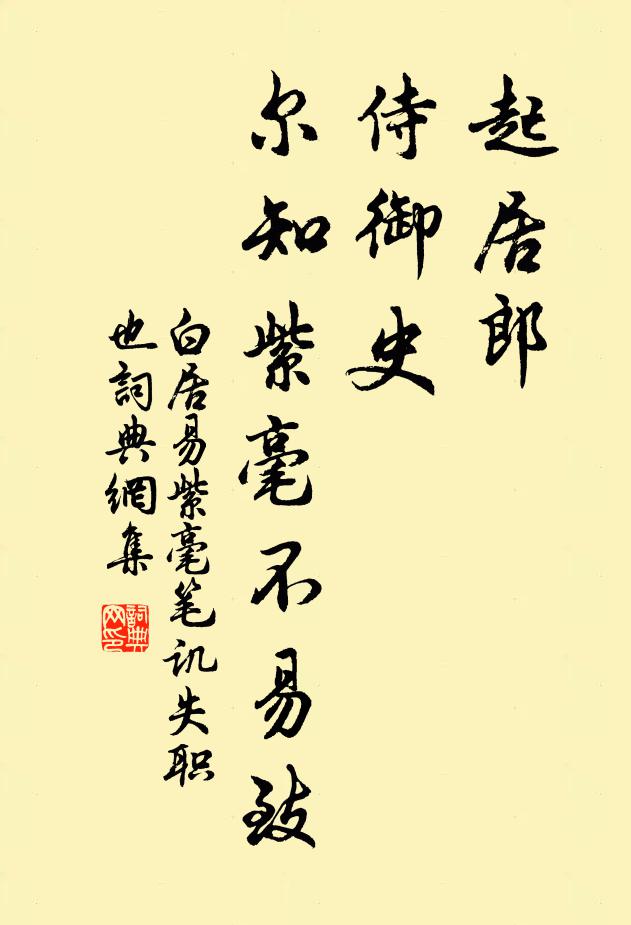 起居郎
侍御史
尔知紫毫不易致
白居易紫毫笔讥失职
也詞典網集
詞典
网印